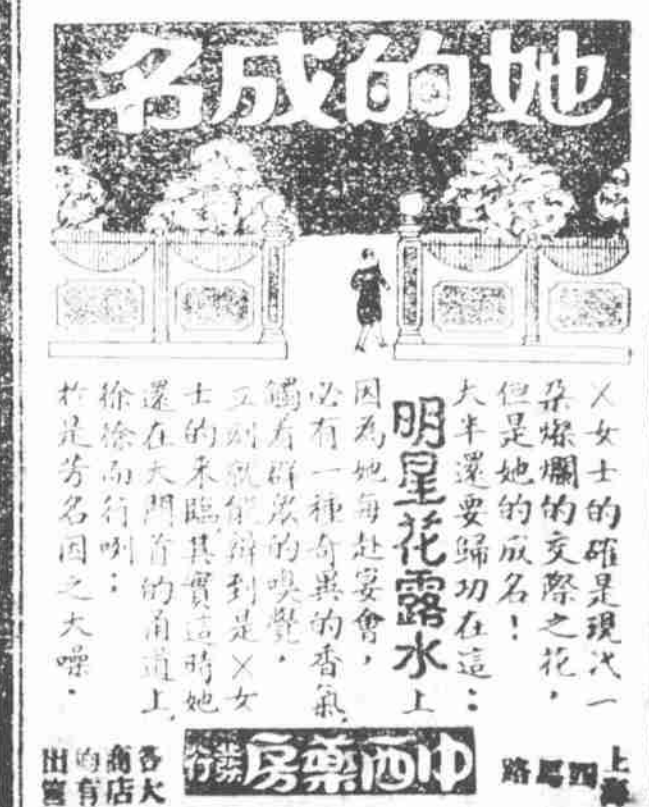 她的成名
X女士的確是現代一
朶燦爛的交際之花，
但是她的成名！
大半還要歸功在這：
明星花露水上
因為她每赴宴會，
必有一種奇異的香氣，
觸着群衆的嗅覺，
立刻就能辨到是X女
士的來臨，其實這時她
還在大門首的甬道上，
徐徐而行咧；
於是芳名因之大噪。
上海四馬路
中西藥房發行
各大
商店
均有
出售